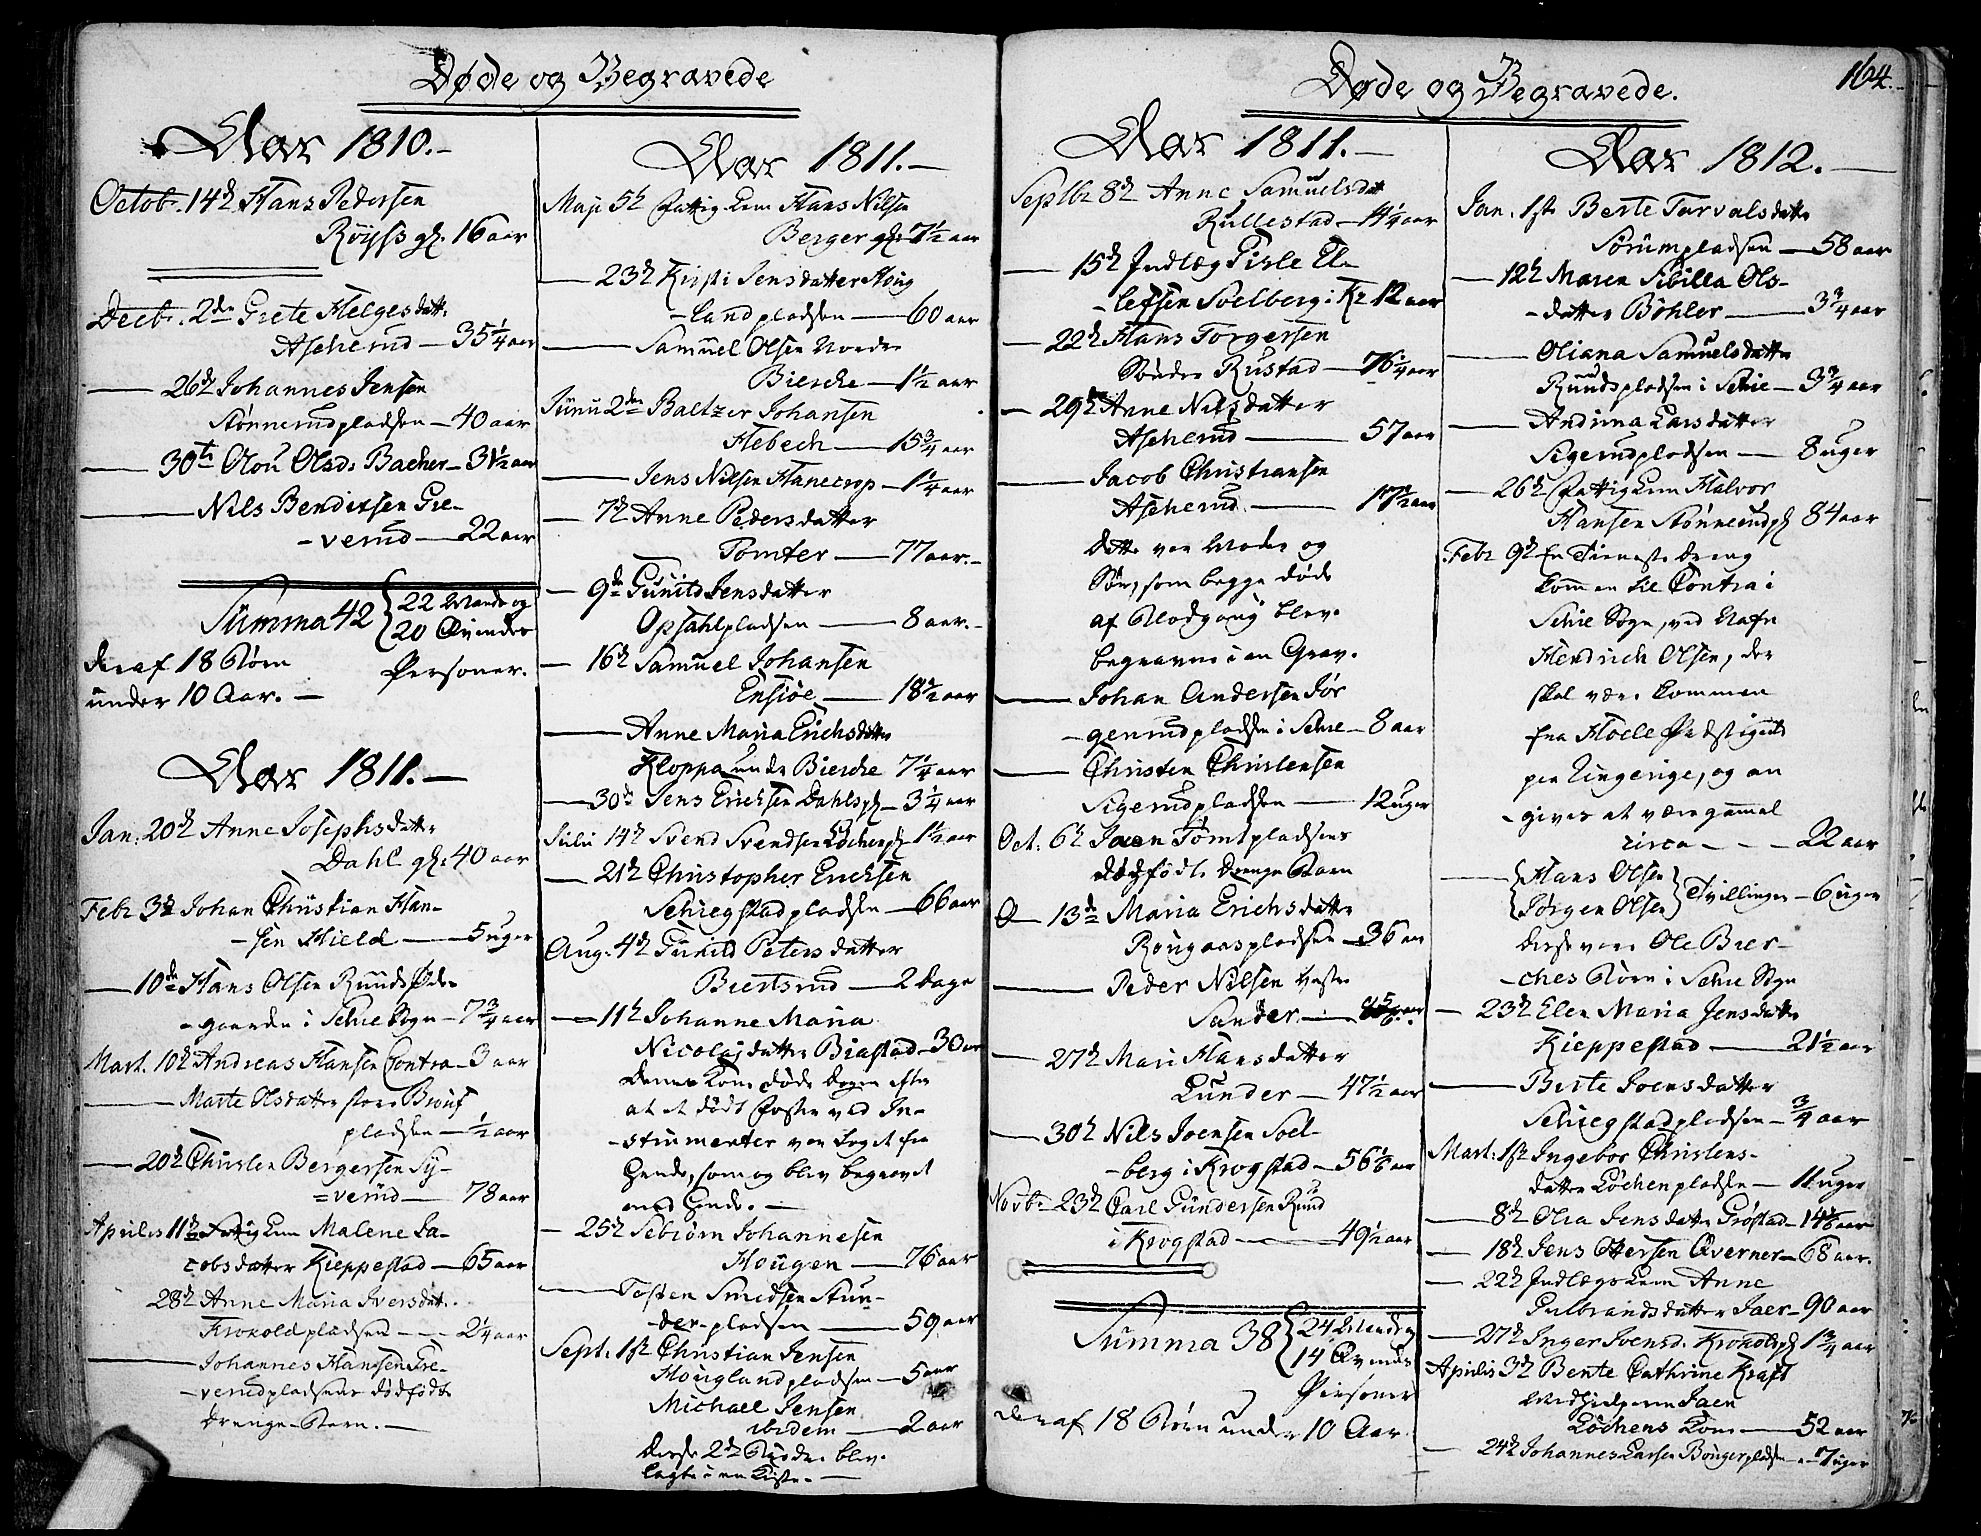 Døde og Begravede
Aar 1810.-
Octobr. 14d Hans Pedersen
Röyss gd. 16 aar
Decbr. 2den Grete Helgesdattr
Ascherud - 35 1/4 aar
26d Johannes Jensen
Stønnerudpladsen - 40 aar
30te Olou Olsdr Bacher - 31 1/2 aar
Nils Bendixsen Gre-
-verud - 22 aar
Summa 42 { 22 Mands og
20 Qvindes
Personer.
deraf 18 Børn
under 10 Aar. -
Aar 1811.-
Jan: 20d Anne Josephsdatter
Dahl gd: 40 aar
Febr 3d Johan Christian Han-
-sen Hield - 5 uger
10de Hans Olsen Ruuds Øde-
-gaarden i Schie Sogn - 7 3/4 aar
Mart. 10d Andreas Hansen Contra - 3 aar
Marte Olsdatter store Bruuf
pladsen - 1/2 aar
20d Christen Bergersen Sy-
=verud - 78 aar
Aprilis 11te Fattig Lem Malene Ja-
cobsdatter Kieppestad - 65 aar
28d Anne Maria Iversdatr.
Krokoldpladsen - 2 1/4 aar
Johannes Hansen Gre-
-verudpladsens dødfødte
Drenge-Barn. -
Aar 1811.-
Maji 5d Fattig Lem Hans Nilsen
Berger gd: 71 1/2 aar
23d Kirsti Jensdatter Houg
-landpladsen - 60 aar
Samuel Olsen Nordre
Bierche - 1 1/2 aar
Junii 2den Baltzer Johansen
Hebech - 15 3/4 aar
Jens Nilsen Hanecrop - 1 1/4 aar
7d Anne Pedersdatter
Tomter - 77 aar.-
9de Gunild Jensdatter
Opsahlpladsen - 8 aar.-
16d Samuel Johansen
Ensiøe - 18 1/2 aar
Anne Maria Erichsdatter
Kloppa unde Bierche 7 1/4 aar
30de Jens Erichsen Dahlspl - 3 1/4 aar
Julii 14d Svend Svendsen Löchenpl - 1 1/2 aar
21d Christopher Erichsen
Schiegstadpladsen - 66 aar
Aug: 4d Gunild Petersdatter
Biertsrud - 2 Dage
11d Johanne Maria
Nicolajdatter Biastad - 30 aar
Denne Kone døde Dagen efter
at et dødt Foster ved In-
-strumenter var taget fra
hende, som og blev begravet
med hende. -
25d Sebiørn Johannesen
Hougen - 76 aar
Tosten Smedsen Stun-
der-pladsen - 59 aar
Sept: 1ste Christian Jensen
Houglandpladsen - 5 aar
Michael Jensen
ibidem - 2 aar
disse 2de Brødre blev
lagte i een Kiste. -
Døde og Begravede.
164.
Aar 1811.-
Septbr 8d Anne Samuelsdatr
Rullestad - 14 1/4 aar
15d Indlæg Gisle El-
-lefsen Soelberg i Kr. 12 aar
22d Hans Torgersen
Søndre Rustad - 76 1/4 aar
29de Anne Nilsdatter
Ascherud - 57 aar
Jacob Christiansen
Ascherud. - 17 1/2 aar
dette var Moder og
Søn, som begge døde
af Blodgang blev
begravne i en Grav.
Johan Andersen Jör
-gerudpladsen i Schie - 8 aar
Christen Christensen
Sigerudpladsen - 12 uger
Oct: 6d Joen Tomtpladsens
dødfødte Drenge Barn
13de Maria Erichsdatter
Rougaaspladsen - 36 aar
Peder Nilsen vestre
Sander -
27d Mari Hansdatter
Lunder - 47 1/2 aar
30d Nils Joensen Soel-
-berg i Krogstad - 56 1/6 aar
Novbr 23d Carl Gundersen Ruud
i Krogstad - 49 1/2 aar
Summa 38 { 24 Mands og
14 Qvinds
Personer
deraf 18 Børn under 10 Aar.
Aar 1812.-
Jan. 1ste Berte Torvalsdatter
Sörumpladsen - 58 aar
12d Maren Sibilla Ols-
-datter Böhler - 3 3/4 aar
Oliana Samuelsdatter
Ruudspladsen i Schie - 3 3/4 aar
Andrina Larsdatter
Sigerudpladsen - 8 uger
26d Fattig Lem Halvor
Hansen Stønnerudpl 84 aar
Febr 9d En Tieneste Dreng
kommen til Contra i
Schie Sogn, ved Nafn
Hendrich Olsen, der
skal være kommen
fra Hoele Præstegield
paa Ringerige, og an
-gives at være gammel
circa - - - 22 aar
{ Hans Olsen
Jørgen Olsen } Tvillinger - 6 uger
disse vare Ole Bier-
-ches Børn i Schie Sogn
23d Elen Maria Jensdatter
Kieppestad - 21 1/2 aar
Berte Joensdatter
Schiegstadpladsen - 3/4 aar
Mart: 1ste Ingebor Christens-
datter Löchenpladsen - 11 uger
8d Olia Jensdatter Grøstad - 14 1/6 aar
18d Jens Ottersen Qverner - 68 aar.
22d Indlægs Lem Anne
Gulbrandsdatter Jaer - 90 aar
27d Inger Svensd. Krokolspl 1 3/4 aar
Aprilis 3d Bente Cathrine Kraft
Medhielperen Joen
Löchens Kone - 52 aar
24d Johannes Larsen Böngerpladsen - 7 uger